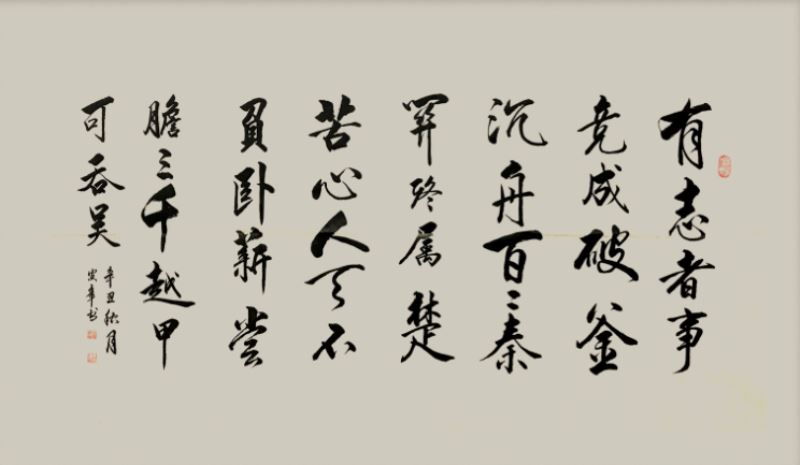 有志者事
竟成破釜
沉舟百二秦
関终属楚
苦心人天不
負卧薪尝
膽三千越甲
可吞吴
辛丑秋月